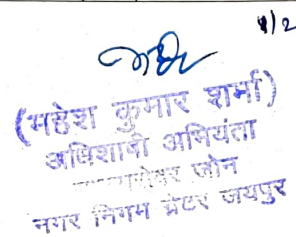 (महेश कुमार शर्मा)
अधिशाषी अभियंता
जोन
नगर निगम ग्रेटर जयपुर